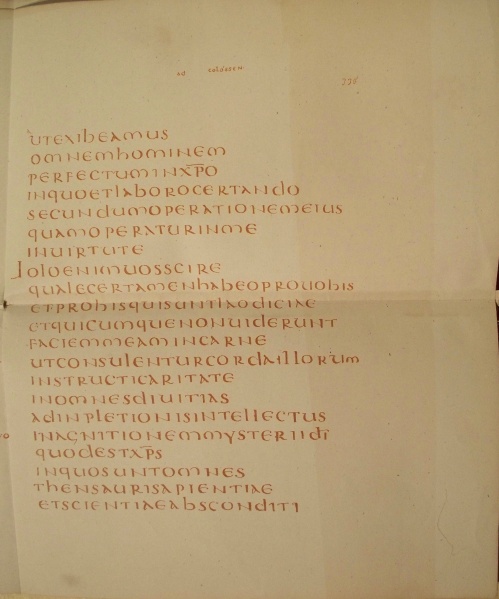 ad colossen
336
UTEXIBEAMUS
OMNEMHOMINEM
PERFECTUMINXPO
INQUOETLABOROCERTANDO
SECUNDUMOPERATIONEMEIUS
QUAMOPERATURINME
INUIRTUTE
UOLOENIMUOSSCIRE
QUALECERTAMENHABEOPROUOBIS
ETPROHISQUISUNTLAODICIAE
ETQUICUMQUENONUIDERUNT
FACIEMMEAMINCARNE
UTCONSULENTURCORDAILLORUM
INSTRUCTICARITATE
INOMNESDIUITIAS
ADINPLETIONISINTELLECTUS
INAGNITIONEMMYSTERIIDI
QUODESTXPS
INQUOSUNTOMNES
THENSAURISAPIENTIAE
ETSCIENTIAEABSCONDITI